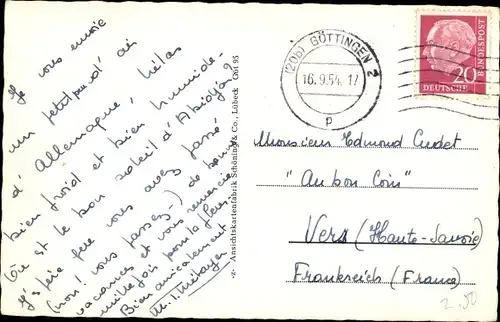 Je vous envoie
un petit peu d'air
d'Allemagne, hélas
bien froid et bien humide.
Où est le bon soleil d'Abidjan?
J'espère que vous avez passé
(non! vous passez!) de bonnes
vacances et vous remercie
mille fois pour la
Bien amicalement
M. J.
-z- Ansichtskartenfabrik Schöning & Co., Lübeck Gött 95
(20b) GÖTTINGEN 2
16.9.54.-17
p
20
DEUTSCHE BUNDESPOST
Monsieur Edmond Cudet
"Au bon Coin"
Vers (Haute-Savoie)
Frankreich (France)
2.50